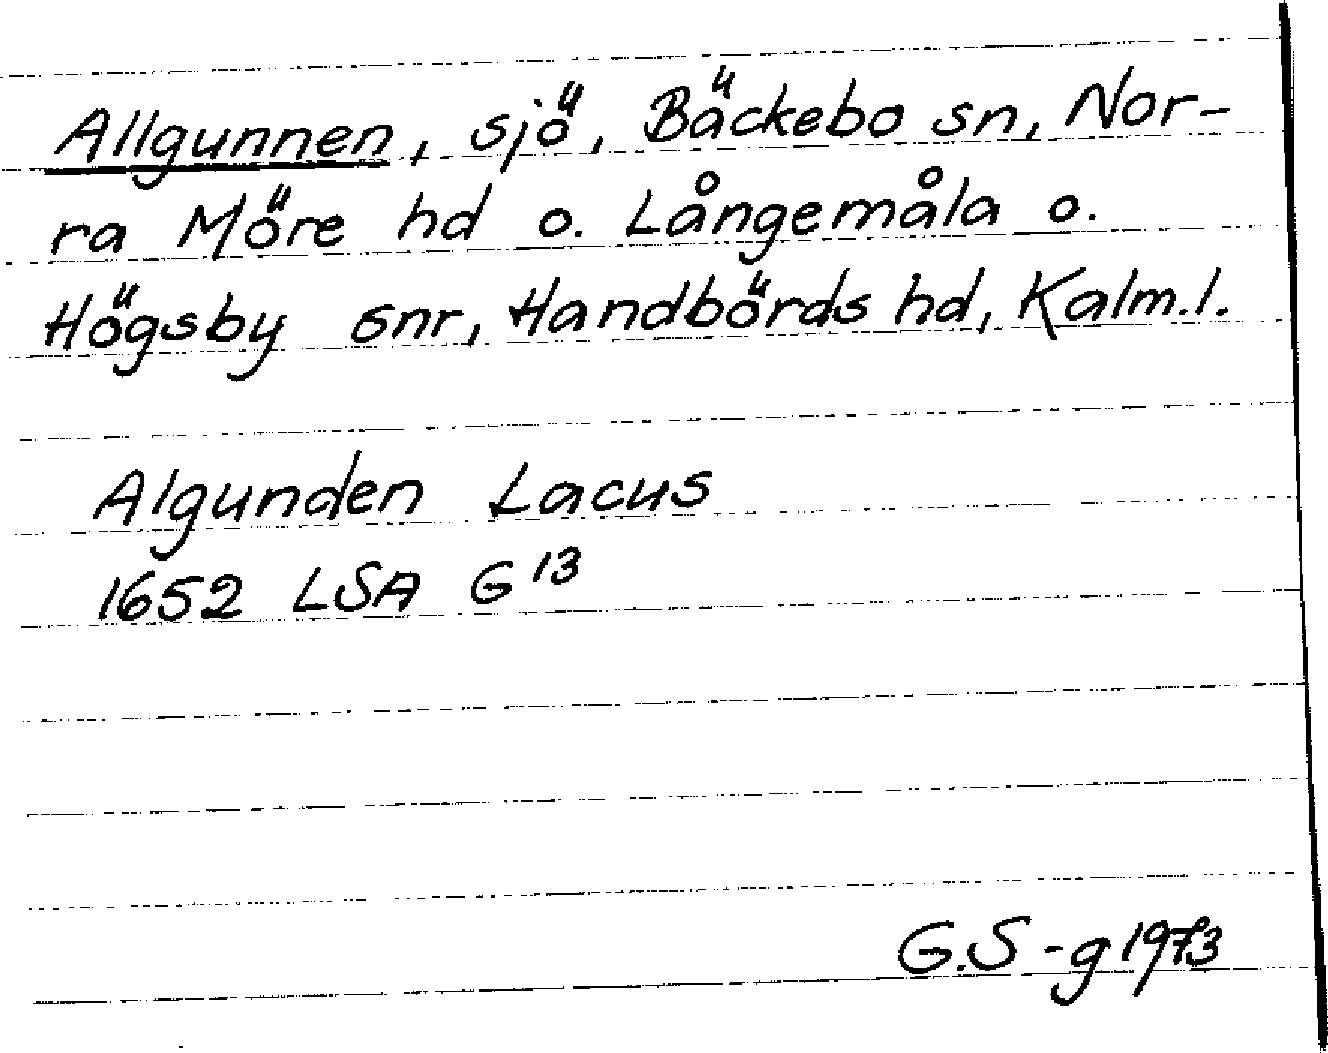 Allgunnen, sjö, Bäckebo sn, Nor-
ra Möre hd o. Långemåla o.
Högsby snr, Handbörds hd, Kalm.l.
Algunden Lacus
1652 LSA G 13
G.S-g 1973